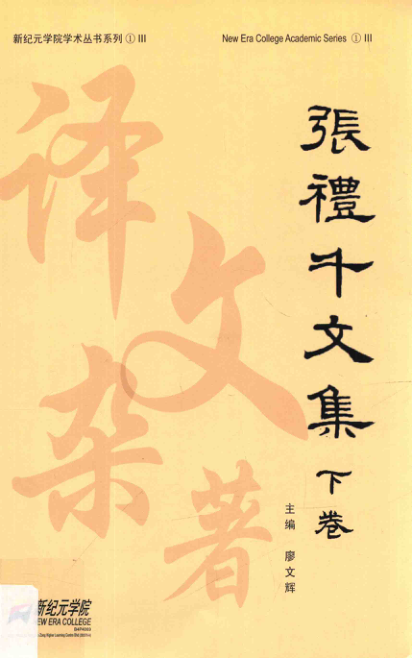 新纪元学院学术丛书系列 ① III
New Era College Academic Series ① III
張禮千文集
下卷
主编 廖文辉
译文
杂著
新纪元学院
EW ERA COLLEGE